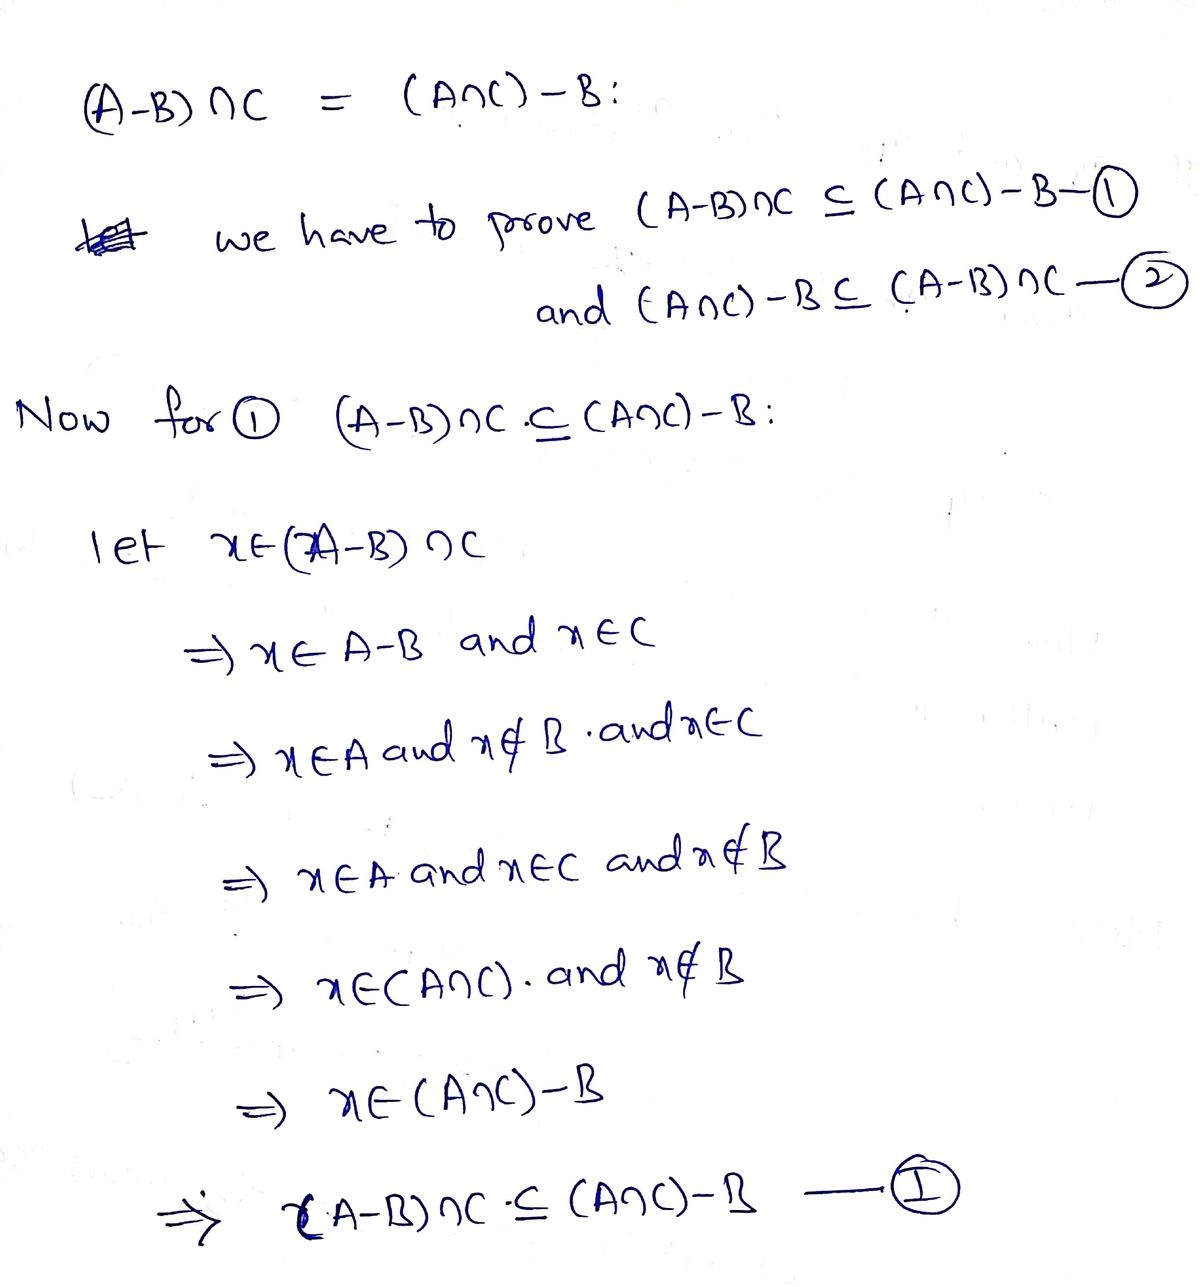 (A-B) ∩C = (A∩C) - B:
we have to prove (A-B)∩C ⊆ (A∩C) - B — ①
and (A∩C) - B ⊆ (A-B)∩C — ②
Now for ① (A-B)∩C ⊆ (A∩C) - B:
let x∈(A-B) ∩C
⇒ x∈ A-B and x∈C
⇒ x∈A and x∉B and x∈C
⇒ x∈A and x∈C and x∉B
⇒ x∈(A∩C) and x∉B
⇒ x∈(A∩C)-B
⇒ (A-B)∩C ⊆ (A∩C)-B — Ⓘ